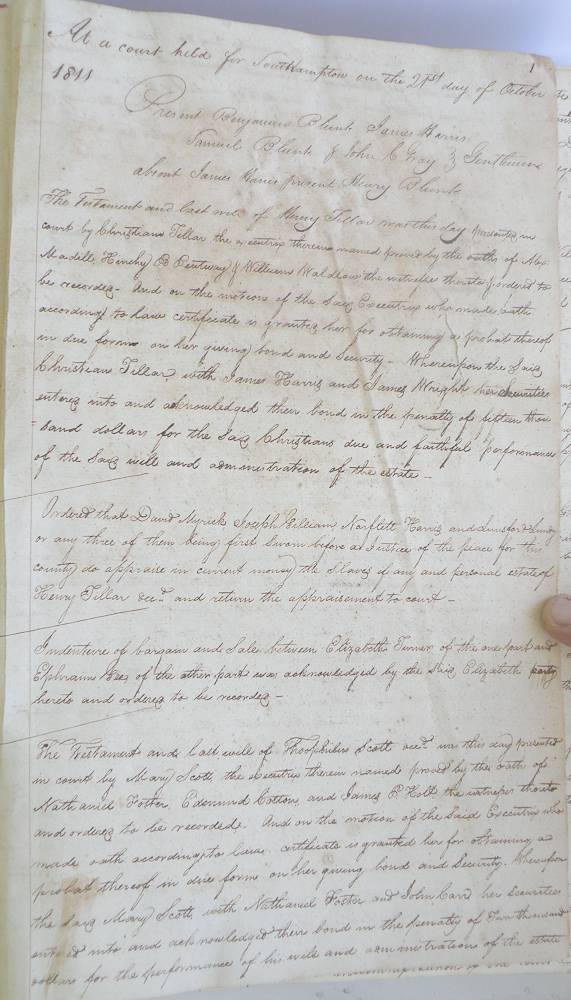 1
At a court held for Southampton on the 21st day of October
1811
Present Benjamin Blunt James Harris
Samuel Blunt & John C Gray Gentlemen
absent James Harris present Henry Blunt
The Testament and last will of Henry Tillar was this day presented in
court by Christian Tillar the executrix therein named proved by the oaths of Alex
William Waldrow the witnesses thereto & ordered to
be recorded - And on the motion of the said Executrix who made oath
according to law certificate is granted her for obtaining a probat thereof
in due form on her giving bond and security - Whereupon the said
Christian Tillar, with James Harris and James Wright her securities
entered into and acknowledged their bond in the penalty of fifteen thou
=sand dollars for the said Christians due and faithful performance
of the said will and administration of the estate -
Ordered that David Myrick Joseph William Norfleet Harris and
or any three of them being first sworn before a Justice of the peace for this
county do appraise in current money the slaves if any and personal estate of
Henry Tillar decd. and return the appraisement to court -
Indenture of bargain and sale between Elizabeth Turner of the one part and
Ephraim of the other part was acknowledged by the said Elizabeth party
hereto and ordered to be recorded -
The Testament and last will of Theophilus Scott decd. was this day presented
in court by Mary Scott the executrix therein named proved by the oath of
Nathaniel Foster, Edmund Cotton, and James B Holt the witnesses thereto
and ordered to be recorded. And on the motion of the said Executrix who
made oath according to law certificate is granted her for obtaining a
probat thereof in due form on her giving bond and security. Whereupon
the said Mary Scott with Nathaniel Foster and John Carr her securities
entered into and acknowledged their bond in the penalty of Two thousand
dollars for the performance of his will and administration of the estate